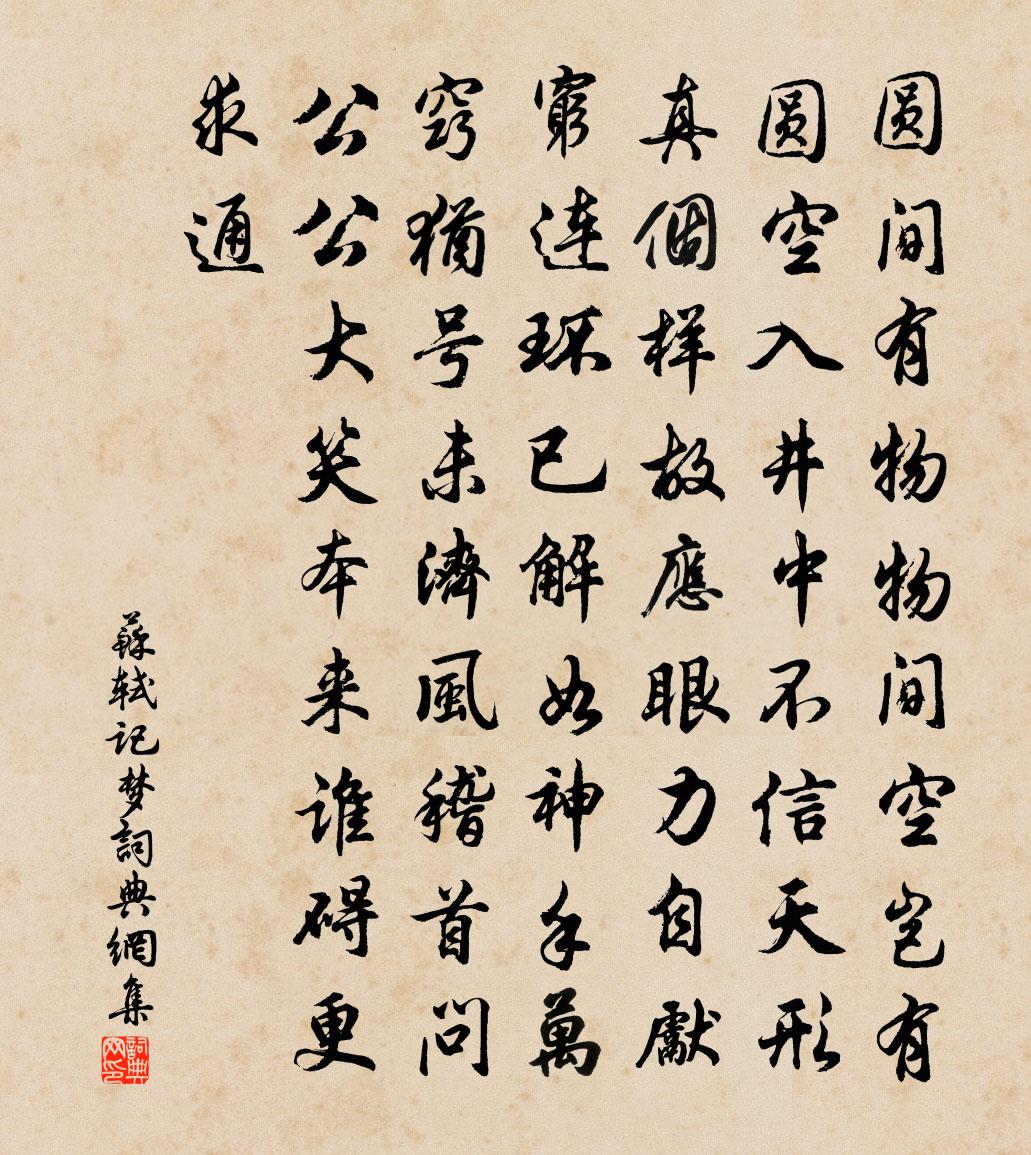 圓间有物物间空岂有
圓空入井中不信天形
真個样故應眼力自獻
窮連环已解如神手萬
窍猶号未濟風稽首問
公公大笑本来谁碍更
求通
蘇軾记梦詞典網集
詞典网印